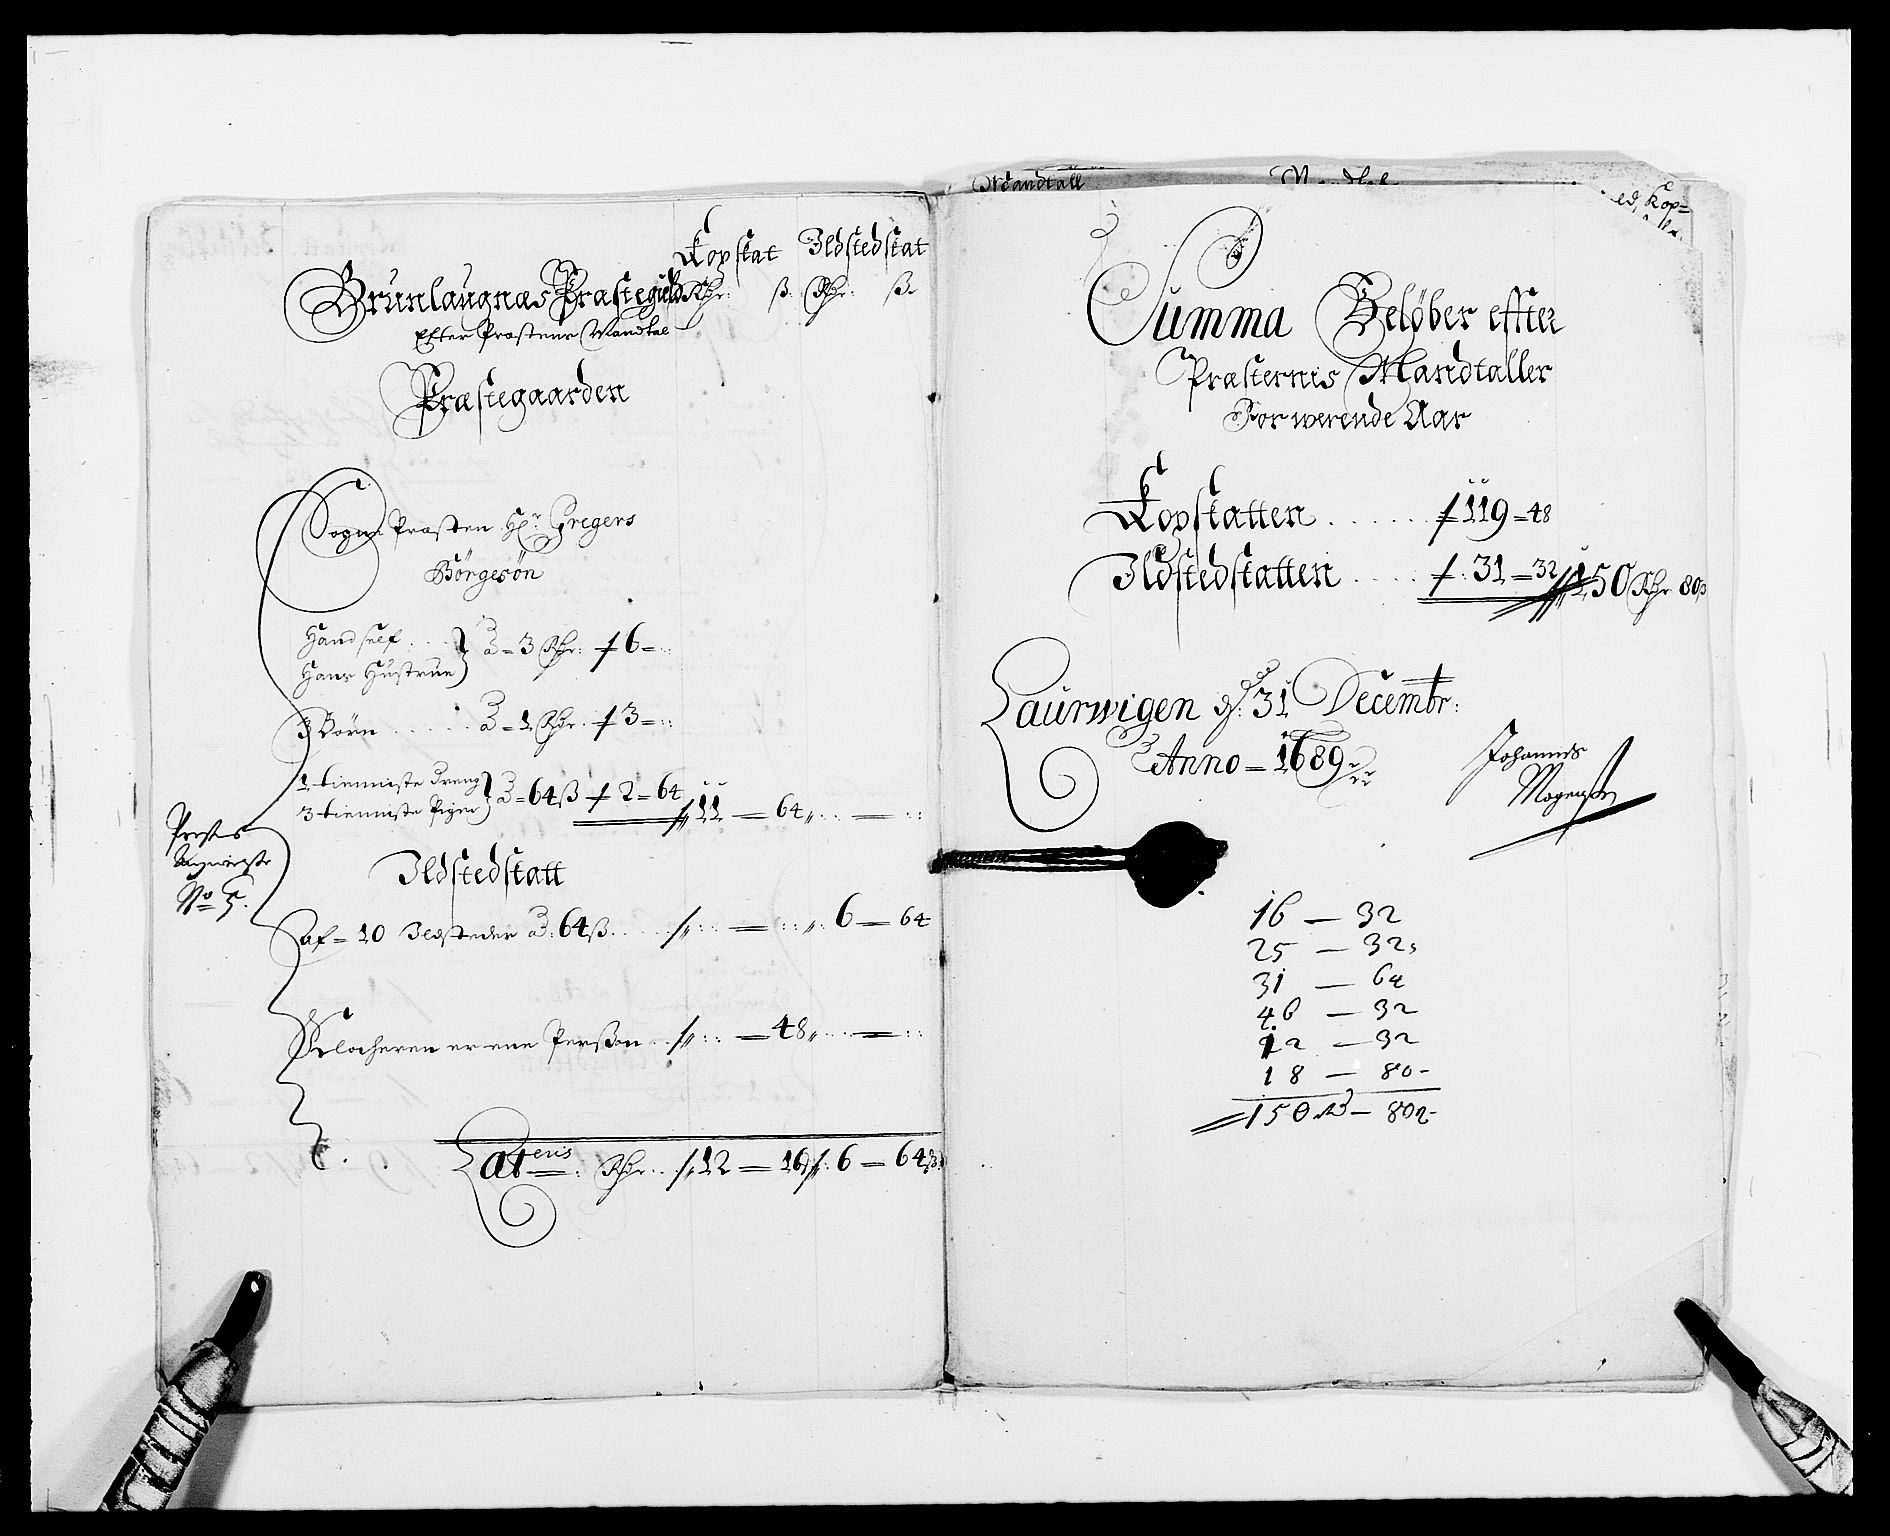 Kopstat Ildstedstat
Brunlaugnæs Præstegield Rdr: ß. Rdr: ß.
Efter Præstens Mandtal
Præstegaarden
Sogne Præsten Hr. Gregers
Börgesön
Hand self . . .
Hans Hustrue } a = 3 Rdr: f 6 =
3 Börn . . . . . a = 1 Rdr. f 3 =
1 tienniste dreng
3 tienniste Piger } a = 64 ß f 2 = 64 11 — 64
Præstens
No 5.
Ildstedstatt
af = 10 Ildsteder a: 64 ß . . . 6 — 64
Klocheren er een Person . . — 48
Lateris: Rdr . . 12 — 16 6 — 64 ß
Mandtall
ed, Kop=
Summa Beløber effter
Præsternis Mandtaller
For werende Aar
Kopskatten . . . . . . f 119 = 48
Ildstedskatten . . . . f. 31 = 32 150 Rdr 80 ß
Laurwigen d: 31 Decembr:
Anno = 1689
Johannes
Mogensen
16 — 32
25 — 32
31 — 64
46 — 32
12 — 32
18 — 80 -
150 — 80